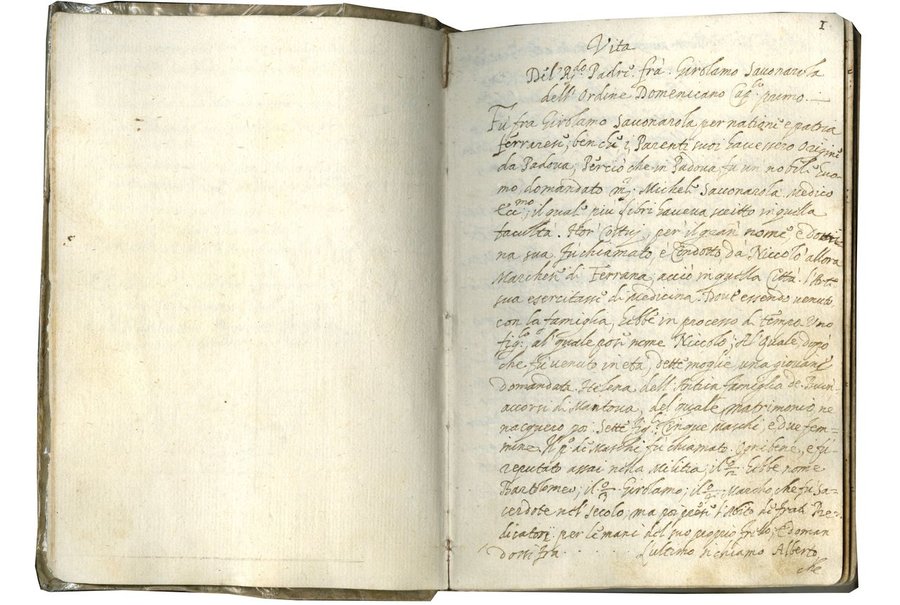 1
Vita
Del R.do Padre frà Girolamo Savonarola
dell' Ordine Domenicano Cap.lo primo.
Fù fra Girolamo Savonarola per natione e patria
ferrarese, benche i Parenti suoi havessero Origine
da Padova, Perciò che in Padova fu un nobile huo-
mo, domandato m. Michele Savonarola, medico
Ecc.mo, il quale più libri haveva scritto in quella
facultà. Hor costui, per il gran nome, e dottri-
na sua, fù chiamato, e condotto da Niccolò allora
Marchese di Ferrara, acciò in quella Città l'Arte
sua esercitasse di medicina. Dove essendo venuto
con la famiglia, hebbe in processo di tempo Uno
fig.lo al quale pose nome Niccolò, Al Quale dopo
che fù venuto in età, dette moglie una giovane
domandata Helena dell' Antica famiglia de Buon
accorsi di Mantova, del quale matrimonio, ne
nacquero poi Sette fig.li Cinque Maschi, e due fem-
mine Il p.o de Maschi fù chiamato Ognibene, e fù
reputato assai nella Militia; il 2.o hebbe nome
Bartolomeo, il 3.o Girolamo; il 4.o Marcho, che fù Sa-
cerdote nel secolo, ma poi prese l'Abito de frati Pre-
dicatori per le mani del suo proprio fr̃ello, e doman
dossi fra . . . . . . L'ultimo si chiamò Alberto
che